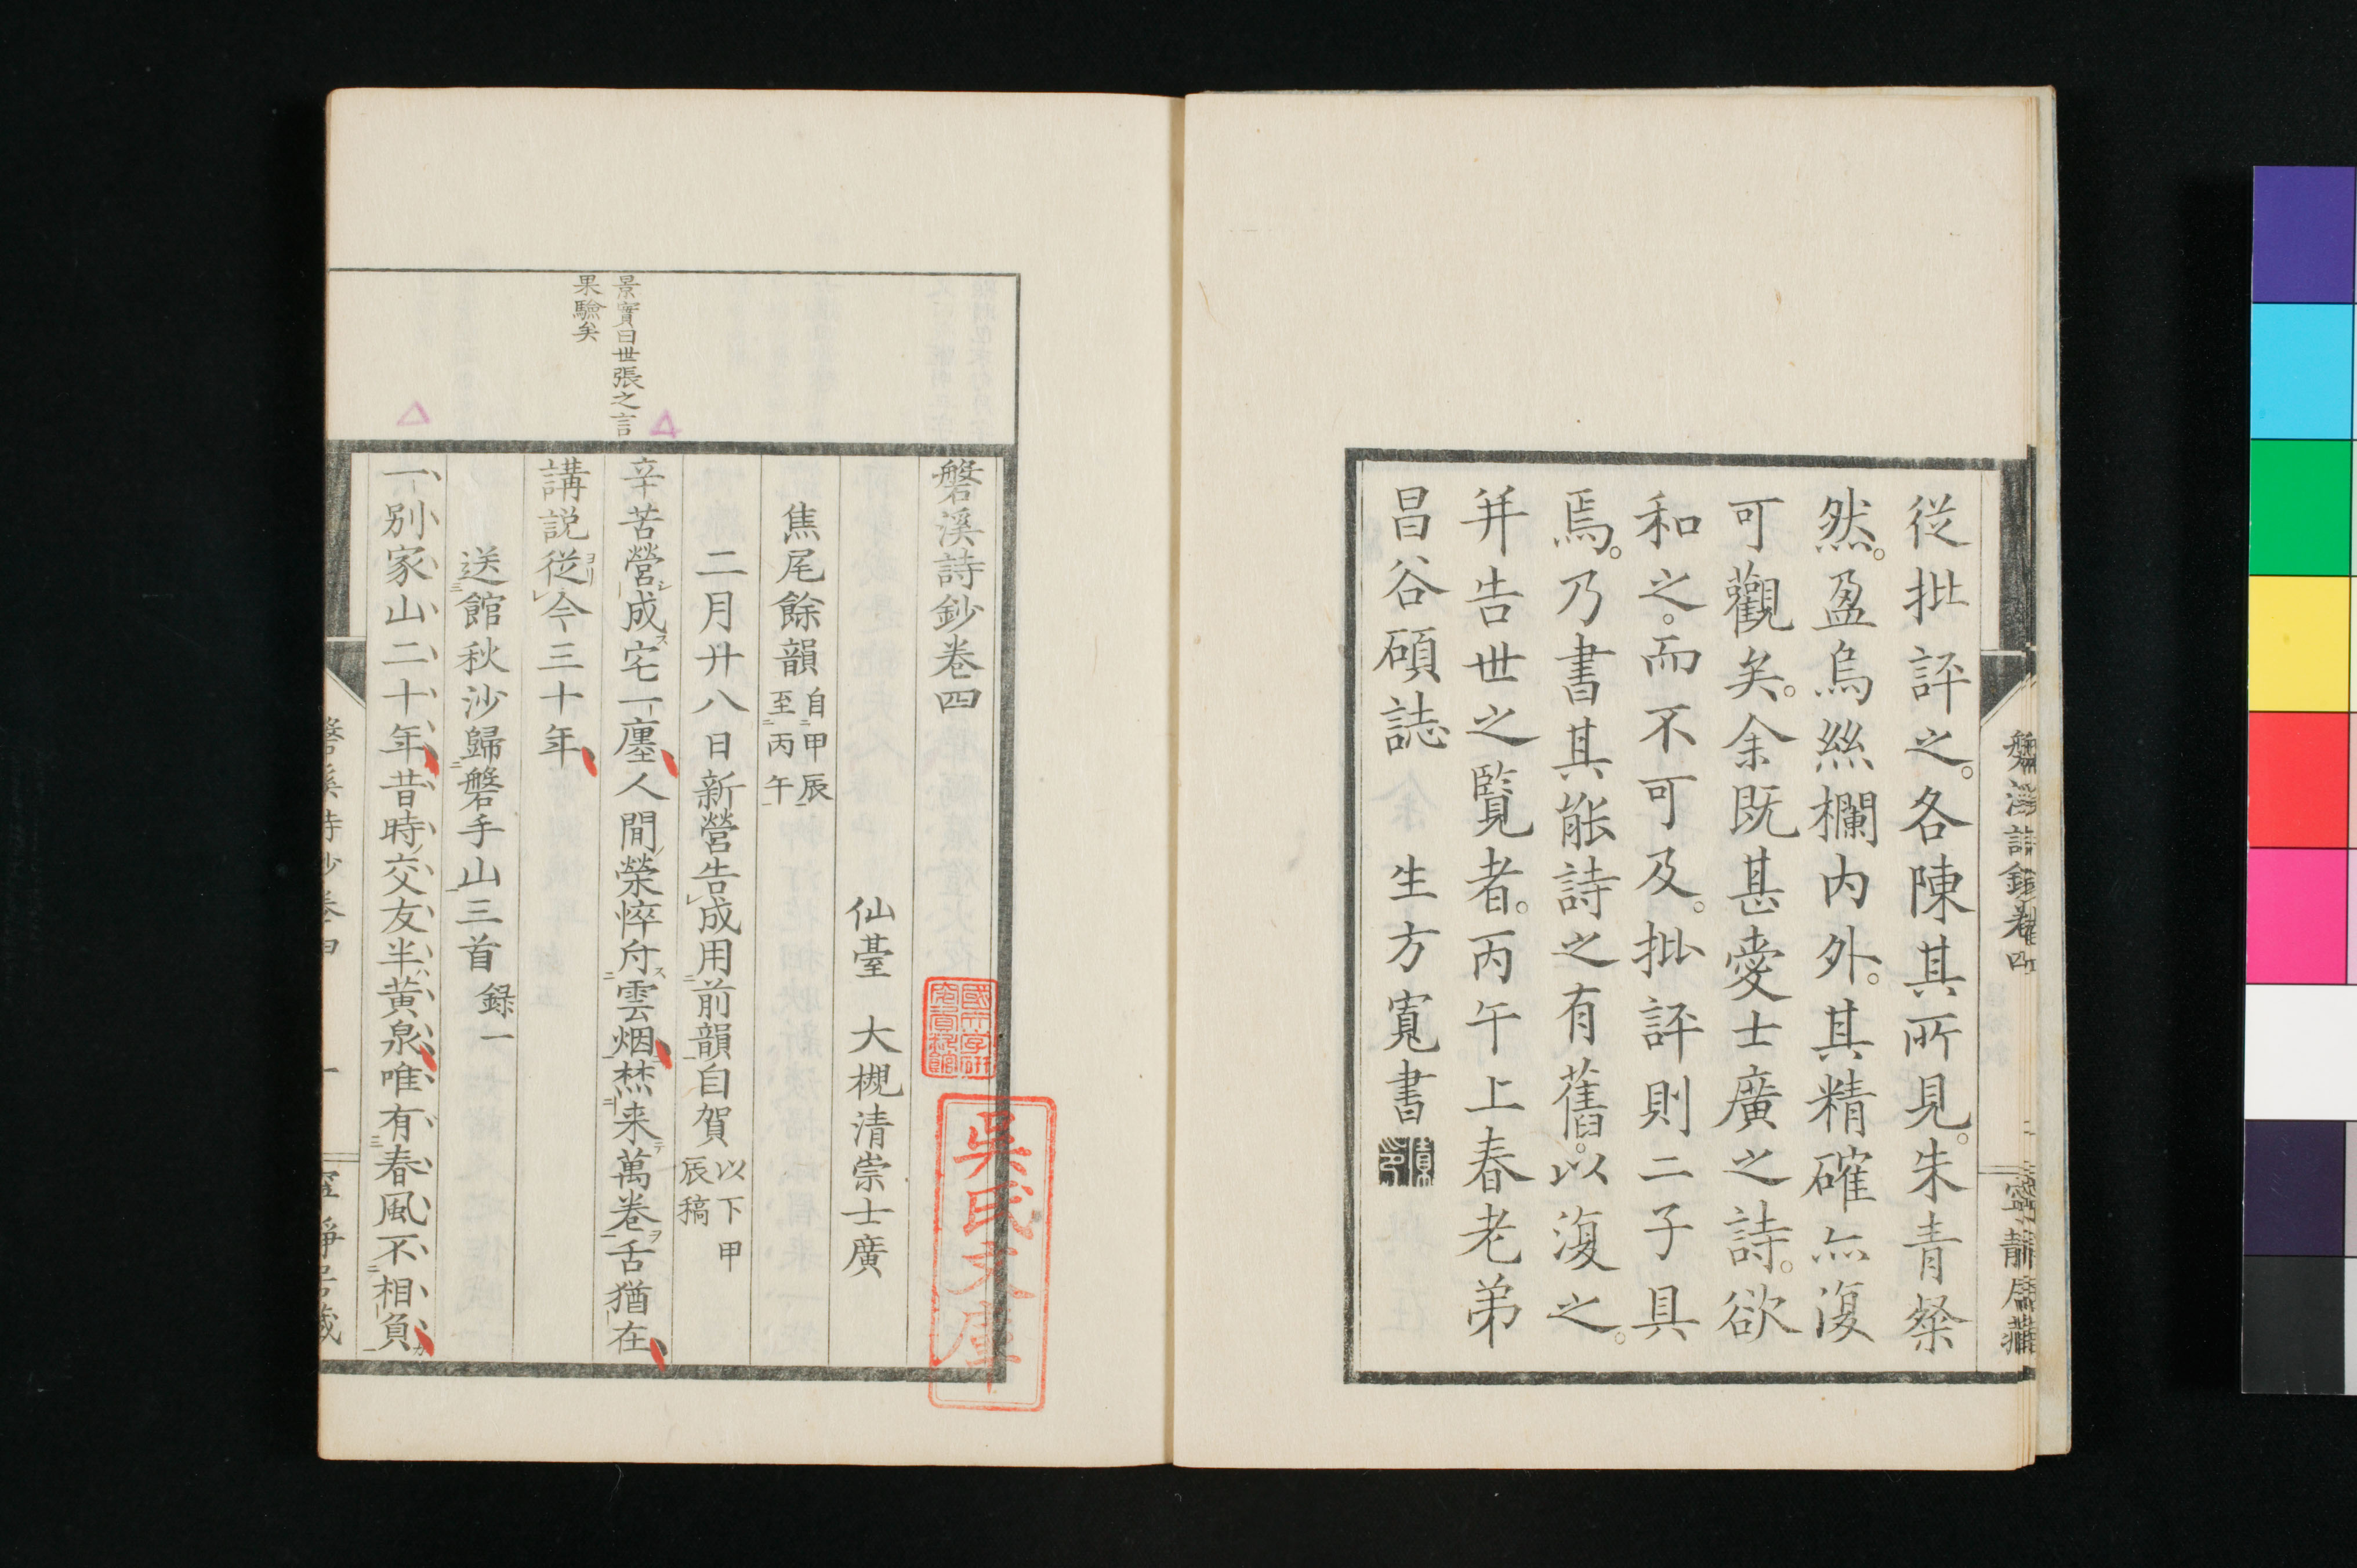 從批評之。各陳其所見。朱青粲
然。盈烏絲欄内外。其精確亦復
可觀矣。余既甚愛士廣之詩。欲
和之。而不可及。批評則二子具
焉。乃書其能詩之有舊。以復之。
并告世之覧者。丙午上春老弟
昌谷碩誌　生方寛書
磐溪詩鈔卷四
二
寧靜居藏
磐溪詩鈔卷四
仙臺　大槻清崇士廣
焦尾餘韻
自甲辰
至丙午
二月廿八日新營告成用前韻自賀
以下甲
辰稿
景實曰世張之言
果驗矣
辛苦營成宅一廛人間榮悴付雲烟焚来萬卷舌猶在
講説從今三十年
送館秋沙歸磐手山三首
録一
一別家山二十年昔時交友半黄泉唯有春風不相負
磐溪詩鈔卷四
一
寧靜居藏
吳氏文庫